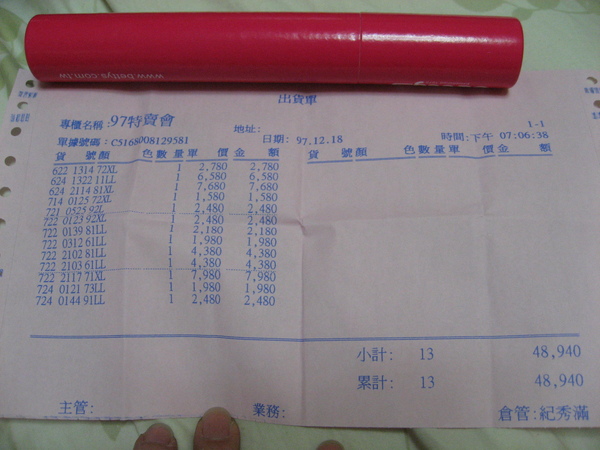 www.bettys.com.tw
出貨單
專櫃名稱:97特賣會
地址:
1-1
單據號碼:C5168008129581
日期: 97.12.18
時間:下午 07:06:38
貨 號 顏 色 數量 單 價 金 額 貨 號 顏 色 數量 單 價 金 額
622 1314 72XL 1 2,780 2,780
624 1322 11LL 1 6,580 6,580
624 2114 81XL 1 7,680 7,680
714 0125 72XL 1 1,580 1,580
721 0525 92L 1 2,480 2,480
722 0123 92XL 1 2,480 2,480
722 0139 81LL 1 2,180 2,180
722 0312 61LL 1 1,980 1,980
722 2102 81LL 1 4,380 4,380
722 2103 61LL 1 4,380 4,380
722 2117 71XL 1 7,980 7,980
724 0121 73LL 1 1,980 1,980
724 0144 91LL 1 2,480 2,480
小計: 13 48,940
累計: 13 48,940
主管: 業務: 倉管:紀秀滿